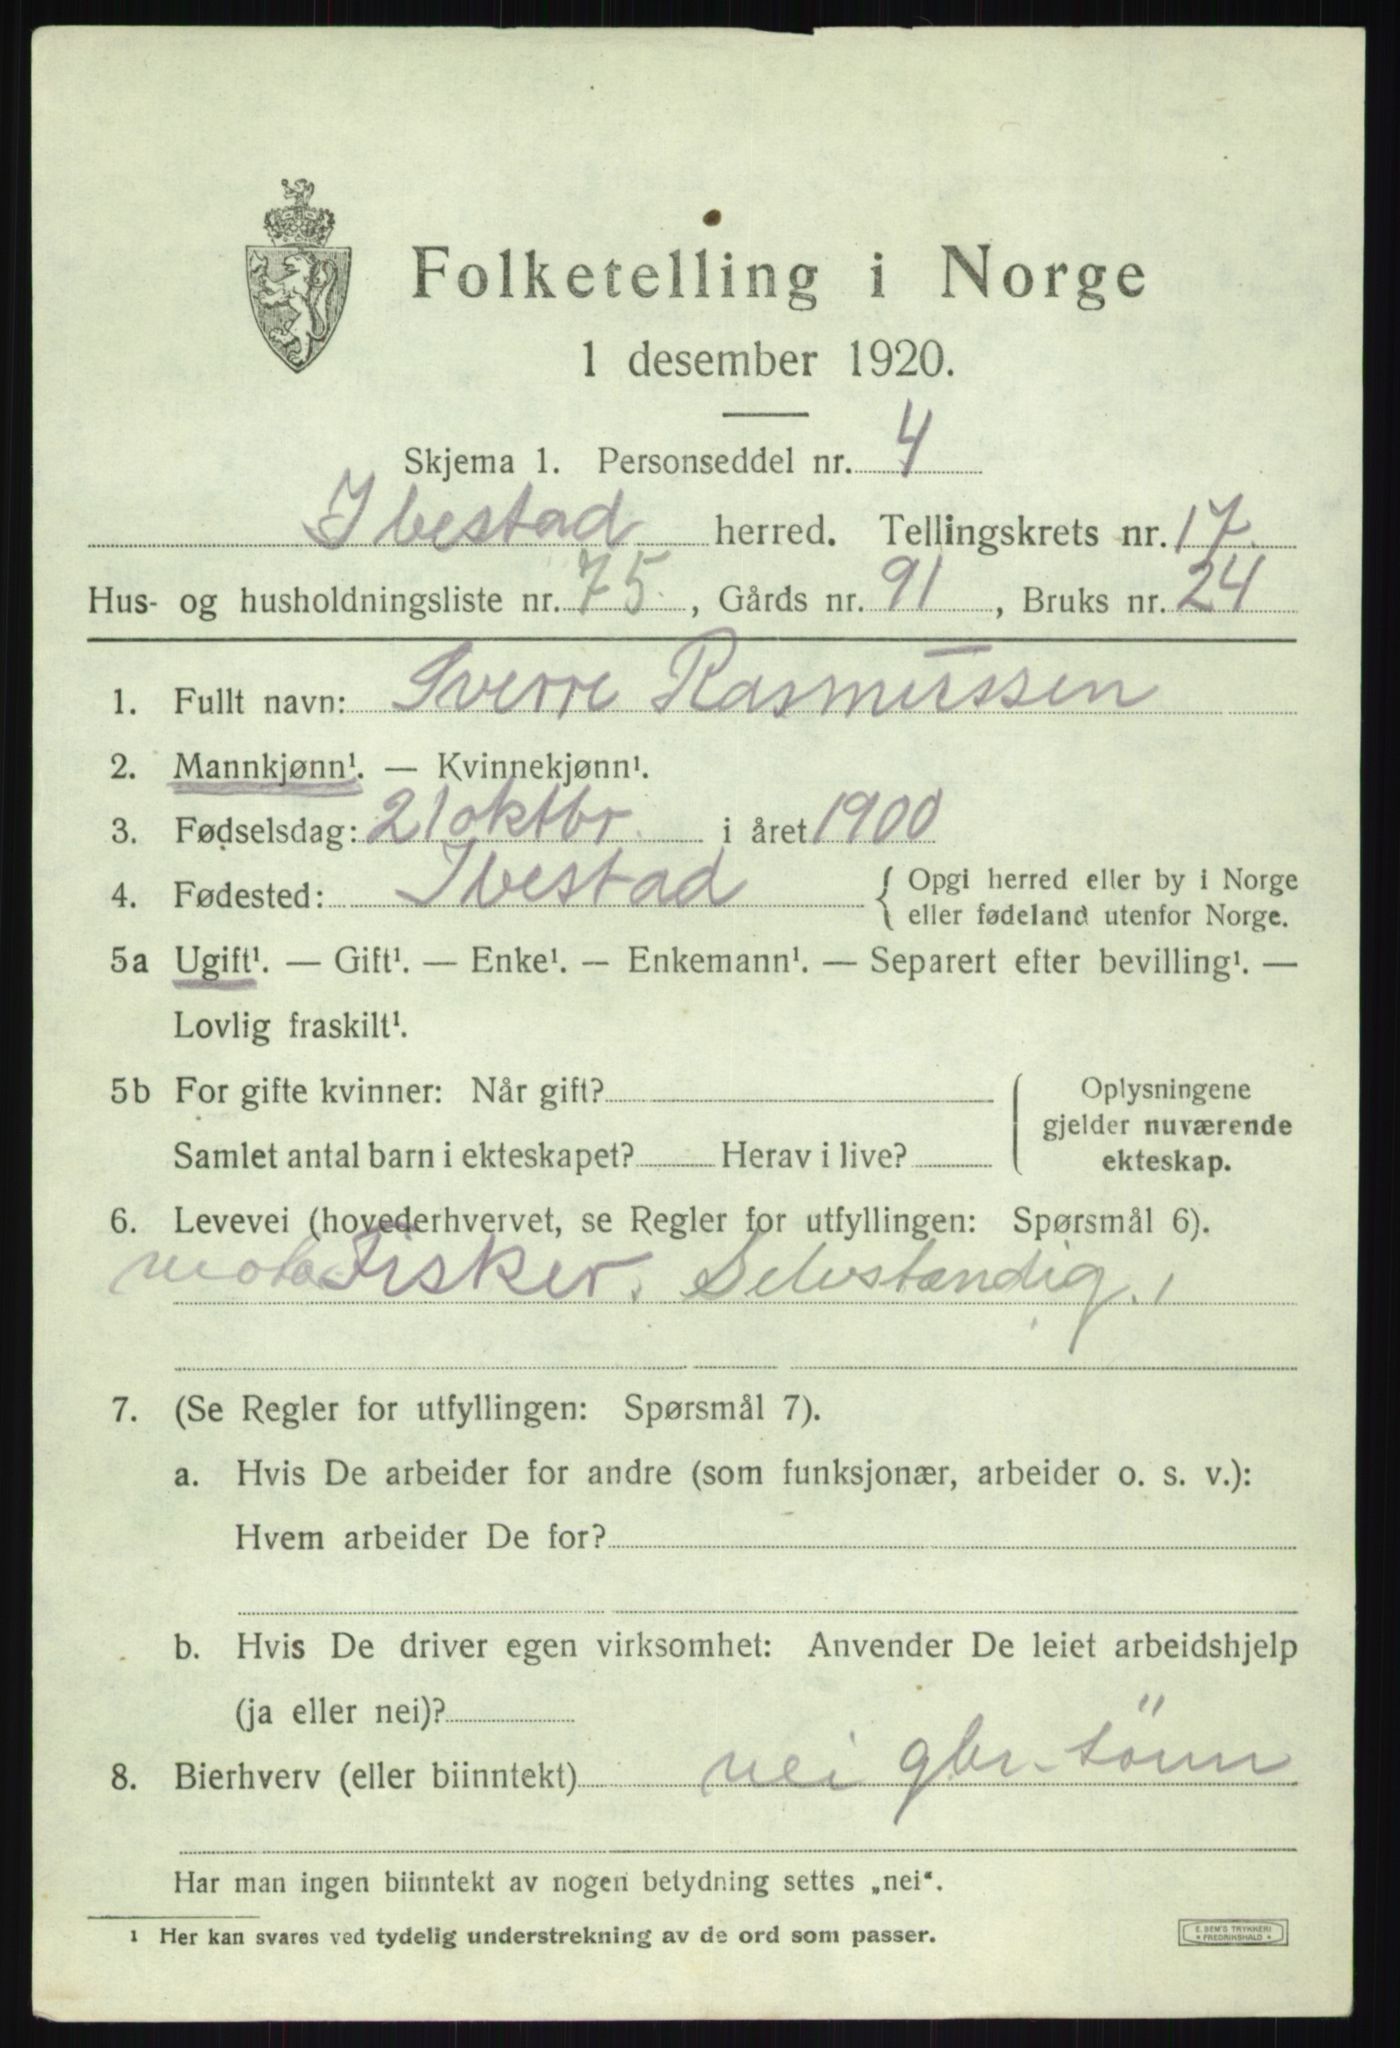 Folketelling i Norge
1 desember 1920.
Skjema 1. Personseddel nr. 4
Ibestad herred. Tellingskrets nr. 17.
Hus- og husholdningsliste nr. 75. , Gårds nr. 91 , Bruks nr. 24
1. Fullt navn: Sverre Rasmussen
2. Mannkjønn¹. — Kvinnekjønn¹.
3. Fødselsdag: 21 oktbr. i året 1900
4. Fødested: Ibestad { Opgi herred eller by i Norge
eller fødeland utenfor Norge.
5a Ugift¹. — Gift¹. — Enke¹. — Enkemann¹. — Separert efter bevilling¹. —
Lovlig fraskilt¹.
5b For gifte kvinner: Når gift?
Samlet antal barn i ekteskapet? Herav i live?
Oplysningene
gjelder nuværende
ekteskap.
6. Levevei (hovederhvervet, se Regler for utfyllingen: Spørsmål 6).
Fisker. Selvstændig.
7. (Se Regler for utfyllingen: Spørsmål 7).
a. Hvis De arbeider for andre (som funksjonær, arbeider o. s. v.):
Hvem arbeider De for?
b. Hvis De driver egen virksomhet: Anvender De leiet arbeidshjelp
(ja eller nei)?
8. Bierhverv (eller biinntekt) nei gbr. sönn
Har man ingen biinntekt av nogen betydning settes „nei“.
1 Her kan svares ved tydelig understrekning av de ord som passer.
E. SEM'S TRYKKERI
* FREDRIKSHALD *